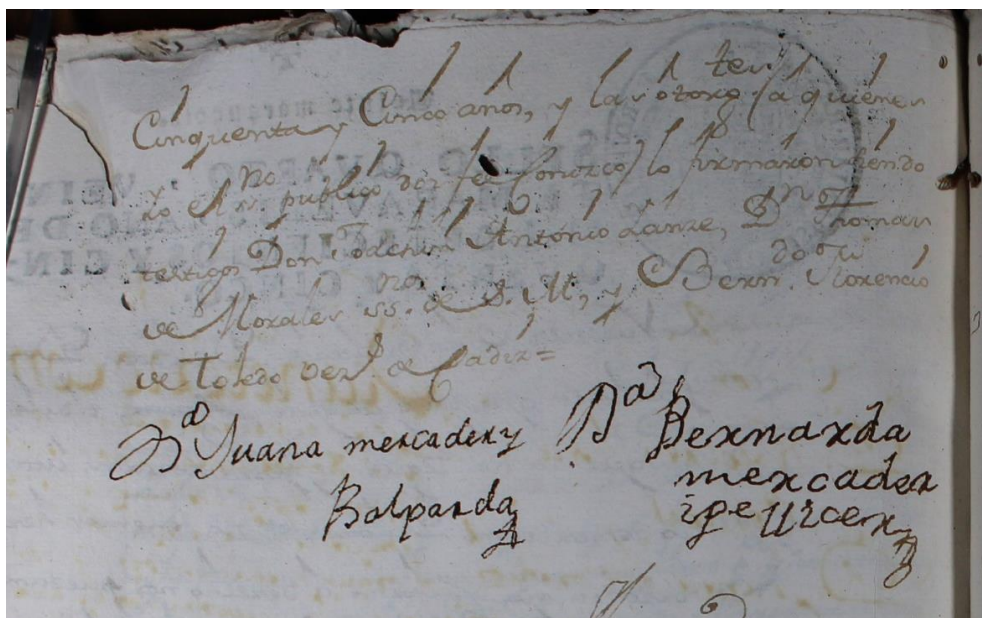 Cinquenta y Cinco años, y las otorg.tes (a quienes
yo el ss.no publico doi fe conozco) lo firmaron siendo
testigos Don Joachin Antonio Lanze, D.n Thomas
de Morales ss.no de S. M., y Bern.do Florencio
de Toledo vez.s de Cadiz =
D.a Juana mercader y
Balparda
D.a Bernarda
mercader